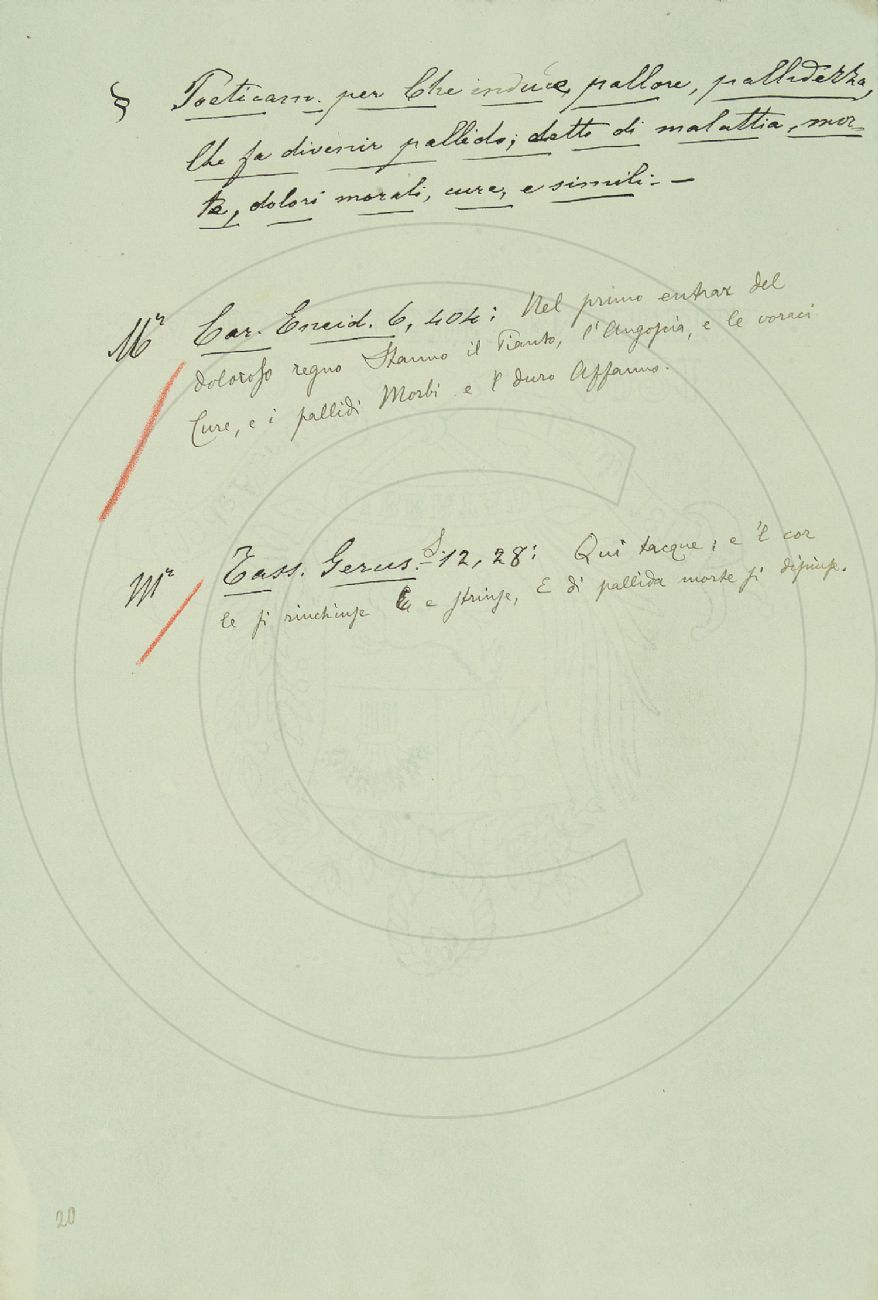 § Poeticam. per Che induce pallore, pallidezza,
Che fa divenir pallido; detto di malattia, mor-
te, dolori morali, cure, e simili. –
Mr Car. Eneid. 6, 404: Nel primo entrar del
doloroso regno Stanno il Pianto, l'Angoscia, e le voraci
Cure, e i pallidi Morbi e 'l duro Affanno.
Mr Tass. Gerus. 12, 28: Qui tacque; e 'l cor
le si rinchiuse e strinse, E di pallida morte si dipinse.
20